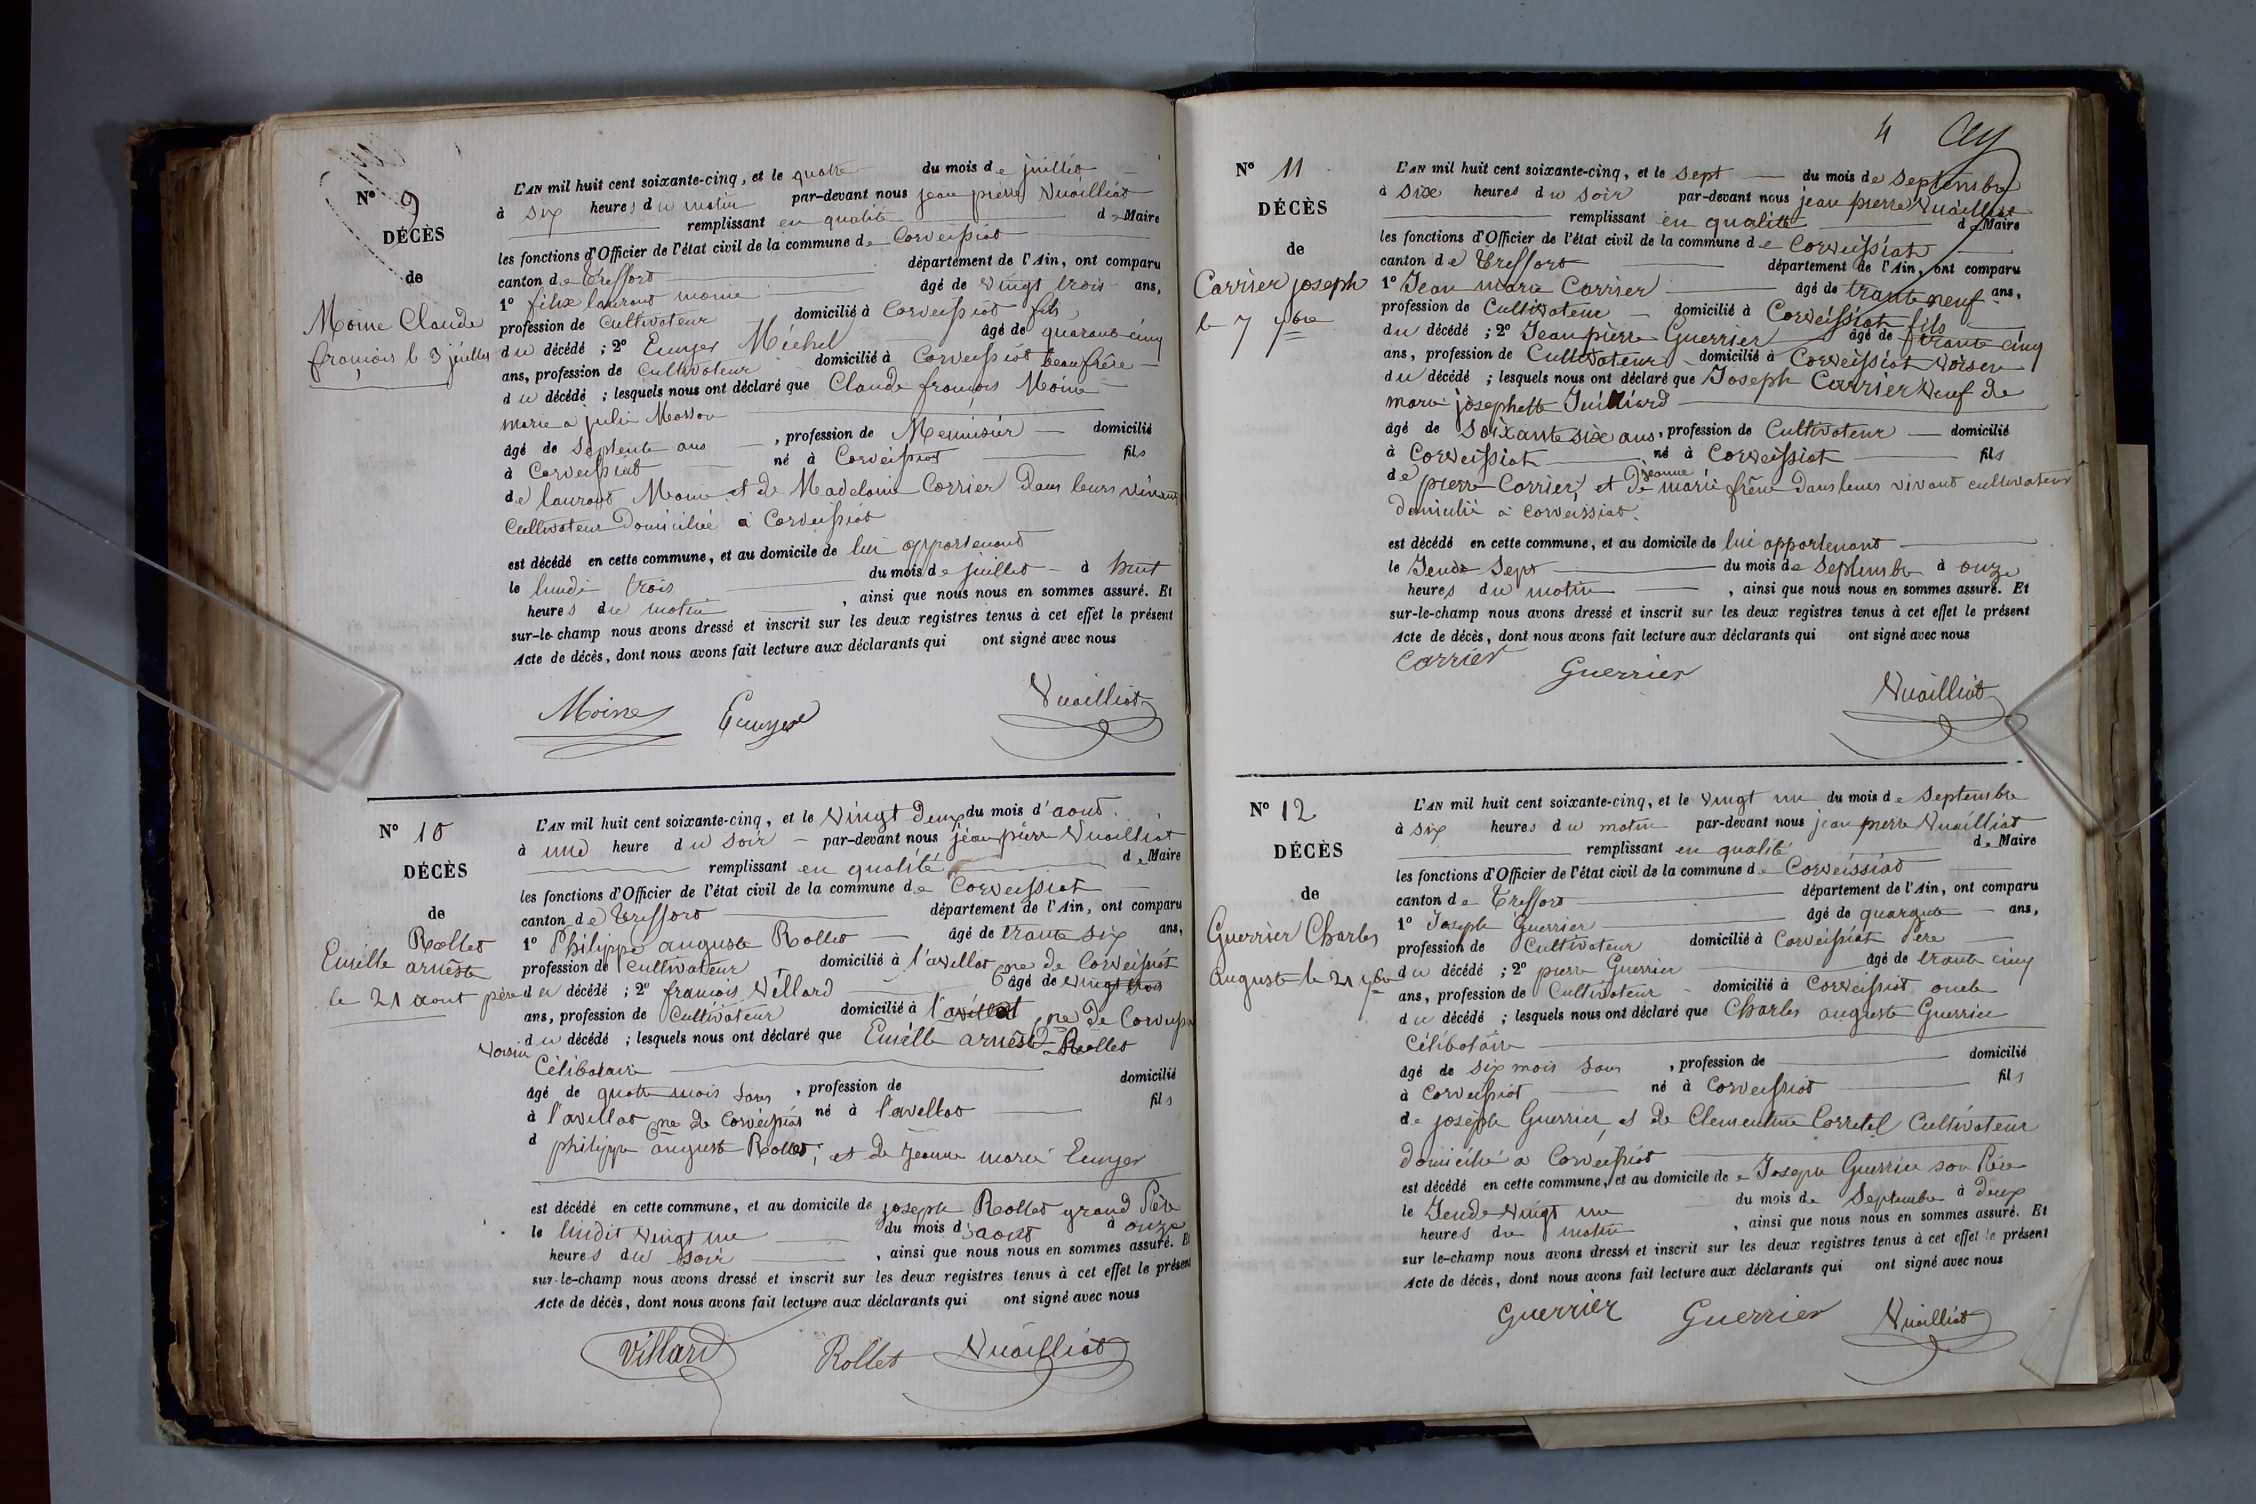 N° 9
DÉCÈS
de
Moine Claude
françois le 3 juillet
L'AN mil huit cent soixante-cinq, et le quatre du mois de juillet
à six heures du matin par-devant nous jean pierre Vuailliat
remplissant en qualité de Maire
les fonctions d'Officier de l'état civil de la commune de Corveissiat
canton de Treffort département de l'Ain, ont comparu
1° félix laurent moine âgé de vingt trois ans,
profession de Cultivateur domicilié à Corveissiat fils
du décédé ; 2° Ecuyer Michel âgé de quarante cinq
ans, profession de Cultivateur domicilié à Corveissiat beaufrère
du décédé ; lesquels nous ont déclaré que Claude françois Moine
marié a julie
âgé de septente ans , profession de Menuisier domicilié
à Corveissiat né à Corveissiat fils
de laurent Moine et de Madelaine Carrier Dans leurs vivant
Cultivateur Domicilié a Corveissiat
est décédé en cette commune, et au domicile de lui appartenant
le lundi trois du mois de juillet à huit
heures du matin , ainsi que nous nous en sommes assuré. Et
sur-le-champ nous avons dressé et inscrit sur les deux registres tenus à cet effet le présent
Acte de décès, dont nous avons fait lecture aux déclarants qui ont signé avec nous
Moine Ecuyer Vuailliat
N° 10
DÉCÈS
de
Rollet
Emille arneste
le 21 aout
L'AN mil huit cent soixante-cinq, et le vingt deux du mois d'aout
à une heure du soir par-devant nous jean pierre Vuailliat
remplissant en qualité de Maire
les fonctions d'Officier de l'état civil de la commune de Corveissiat
canton de Treffort département de l'Ain, ont comparu
1° Philippe auguste Rollet âgé de trante six ans,
profession de Cultivateur domicilié à l'avellat Cne de Corveissiat
père du décédé ; 2° françois Villard âgé de vingt trois
ans, profession de Cultivateur domicilié à l'avellat Cne de Corveissiat
voisin du décédé ; lesquels nous ont déclaré que Emille arneste Rollet
Célibataire
âgé de quatre mois sans , profession de domicilié
à l'avellat Cne de Corveissiat né à l'avellat fils
d philippe auguste Rollet, et de jeanne marie Ecuyer
est décédé en cette commune, et au domicile de joseph Rollet grand Père
le lundit vingt une du mois d'aout à onze
heures du soir , ainsi que nous nous en sommes assuré. Et
sur-le-champ nous avons dressé et inscrit sur les deux registres tenus à cet effet le présent
Acte de décès, dont nous avons fait lecture aux déclarants qui ont signé avec nous
Villard Rollet Vuailliat
4
N° 11
DÉCÈS
de
Carrier joseph
le 7 7bre
L'AN mil huit cent soixante-cinq, et le sept du mois de septembre
à six heures du soir par-devant nous jean pierre Vuailliat
remplissant en qualitté de Maire
les fonctions d'Officier de l'état civil de la commune de Corveissiat
canton de Treffort département de l'Ain, ont comparu
1° Jean marie Carrier âgé de trante neuf ans,
profession de Cultivateur domicilié à Corveissiat fils
du décédé ; 2° Jean pierre Guerrier âgé de trante cinq
ans, profession de Cultivateur domicilié à Corveissiat voisin
du décédé ; lesquels nous ont déclaré que Joseph Carrier Veuf de
marie josephette Juilliard
âgé de soixante six ans, profession de Cultivateur domicilié
à Corveissiat né à Corveissiat fils
de pierre Carrier, et de jeanne marie frêne dans leurs vivant cultivateur
domicilié à corveissiat.
est décédé en cette commune, et au domicile de lui appartenant
le Jeudi Sept du mois de Septembre à onze
heures du matin , ainsi que nous nous en sommes assuré. Et
sur-le-champ nous avons dressé et inscrit sur les deux registres tenus à cet effet le présent
Acte de décès, dont nous avons fait lecture aux déclarants qui ont signé avec nous
Carrier Guerrier Vuailliat
N° 12
DÉCÈS
de
Guerrier Charles
auguste le 21 7bre
L'AN mil huit cent soixante-cinq, et le vingt un du mois de Septembre
à six heures du matin par-devant nous jean pierre Vuailliat
remplissant en qualité de Maire
les fonctions d'Officier de l'état civil de la commune de Corveissiat
canton de Treffort département de l'Ain, ont comparu
1° Joseph Guerrier âgé de quarante ans,
profession de Cultivateur domicilié à Corveissiat Père
du décédé ; 2° pierre Guerrier âgé de trante cinq
ans, profession de Cultivateur domicilié à Corveissiat oncle
du décédé ; lesquels nous ont déclaré que Charles auguste Guerrier
Célibataire
âgé de six mois sans , profession de domicilié
à Corveissiat né à Corveissiat fils
de joseph Guerrier, et de Clementine Corretel Cultivateur
domicilié a Corveissiat
est décédé en cette commune, et au domicile de Joseph Guerrier son Père
le Jeudi vingt un du mois de Septembre à deux
heures du matin , ainsi que nous nous en sommes assuré. Et
sur le-champ nous avons dressé et inscrit sur les deux registres tenus à cet effet le présent
Acte de décès, dont nous avons fait lecture aux déclarants qui ont signé avec nous
Guerrier Guerrier Vuailliat